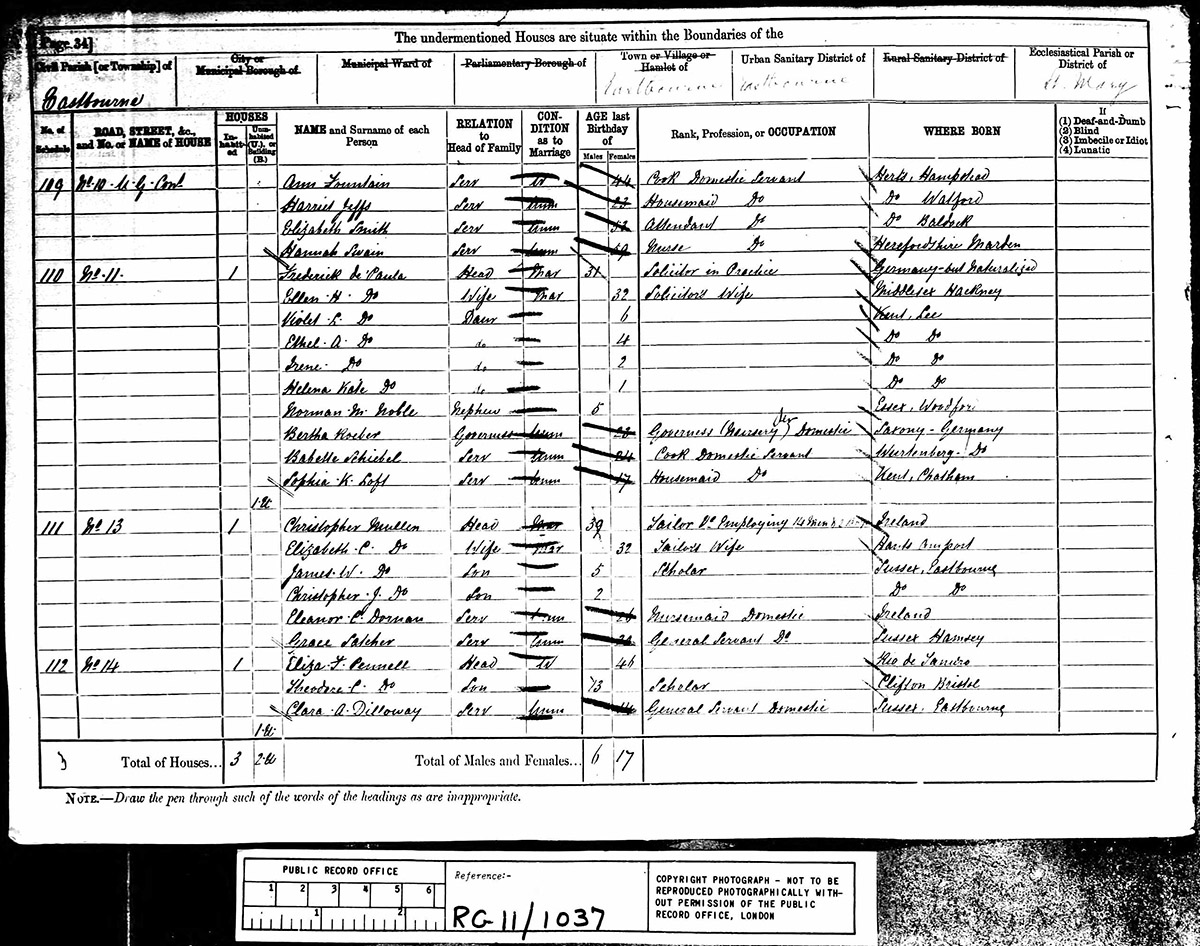 Page 34]
The undermentioned Houses are situate within the Boundaries of the
Civil Parish [or Township] of
City or Municipal Borough of
Municipal Ward of
Parliamentary Borough of
Town or Village or Hamlet of
Urban Sanitary District of
Rural Sanitary District of
Ecclesiastical Parish or District of
Eastbourne Eastbourne Eastbourne St. Mary
No. of Schedule
ROAD, STREET, &c., and No. or NAME of HOUSE
HOUSES
In-habit-ed
Unin-habited (U.), or Building (B.)
NAME and Surname of each Person
RELATION to Head of Family
CON-DITION as to Marriage
AGE last Birthday of
Males Females
Rank, Profession, or OCCUPATION
WHERE BORN
If
(1) Deaf-and-Dumb
(2) Blind
(3) Imbecile or Idiot
(4) Lunatic
109 No. 10 Ann Fountain Serv W 44 Cook Domestic Servant Herts, Hampstead
Harriet Jeffs Serv Unm 23 Housemaid Do Do Watford
Elizabeth Smith Serv Unm Attendant Do Do Baldock
Hannah Swain Serv Unm 59 Nurse Do Herefordshire Marden
110 No. 11 1 Frederick de Paula Head Mar 31 Solicitor in Practice Germany-but Naturalized
Ellen H. Do Wife Mar 32 Solicitor's Wife Middlesex Hackney
Violet L. Do Daur 6 Kent, Lee
Ethel A. Do do 4 Do Do
Irene Do do 2 Do Do
Helena Kate Do do 1 Do Do
Norman M. Noble Nephew 5 Essex, Woodford
Bertha Koeber Governess Unm 23 Governess (Nursery) Domestic Saxony - Germany
Babette Schiebel Serv Unm 24 Cook Domestic Servant Wurtenberg Do
Sophia K. Loft Serv Unm 17 Housemaid Do Kent, Chatham
1.U
111 No 13 1 Christopher Mullen Head Mar 39 Tailor Employing 14 Men & 2 Ireland
Elizabeth C. Do Wife Mar 32 Tailors Wife Hants
James W. Do Son 5 Scholar Sussex, Eastbourne
Christopher J. Do Son 2 Do Do
Eleanor C. Dornan Serv Unm 26 Nursemaid Domestic Ireland
Grace Satcher Serv Unm General Servant Do Sussex Hamsey
112 No 14 1 Eliza F. Pennell Head W 46 Rio de Janeiro
Theodore C. Do Son 13 Scholar Clifton Bristol
Clara A. Dilloway Serv Unm General Servant Domestic Sussex, Eastbourne
1.U
3 Total of Houses... 3 2.U Total of Males and Females... 6 17
NOTE.—Draw the pen through such of the words of the headings as are inappropriate.
PUBLIC RECORD OFFICE
1 2 3 4 5 6
1 2
Reference:-
RG 11/1037
COPYRIGHT PHOTOGRAPH - NOT TO BE
REPRODUCED PHOTOGRAPHICALLY WITH-
OUT PERMISSION OF THE PUBLIC
RECORD OFFICE, LONDON